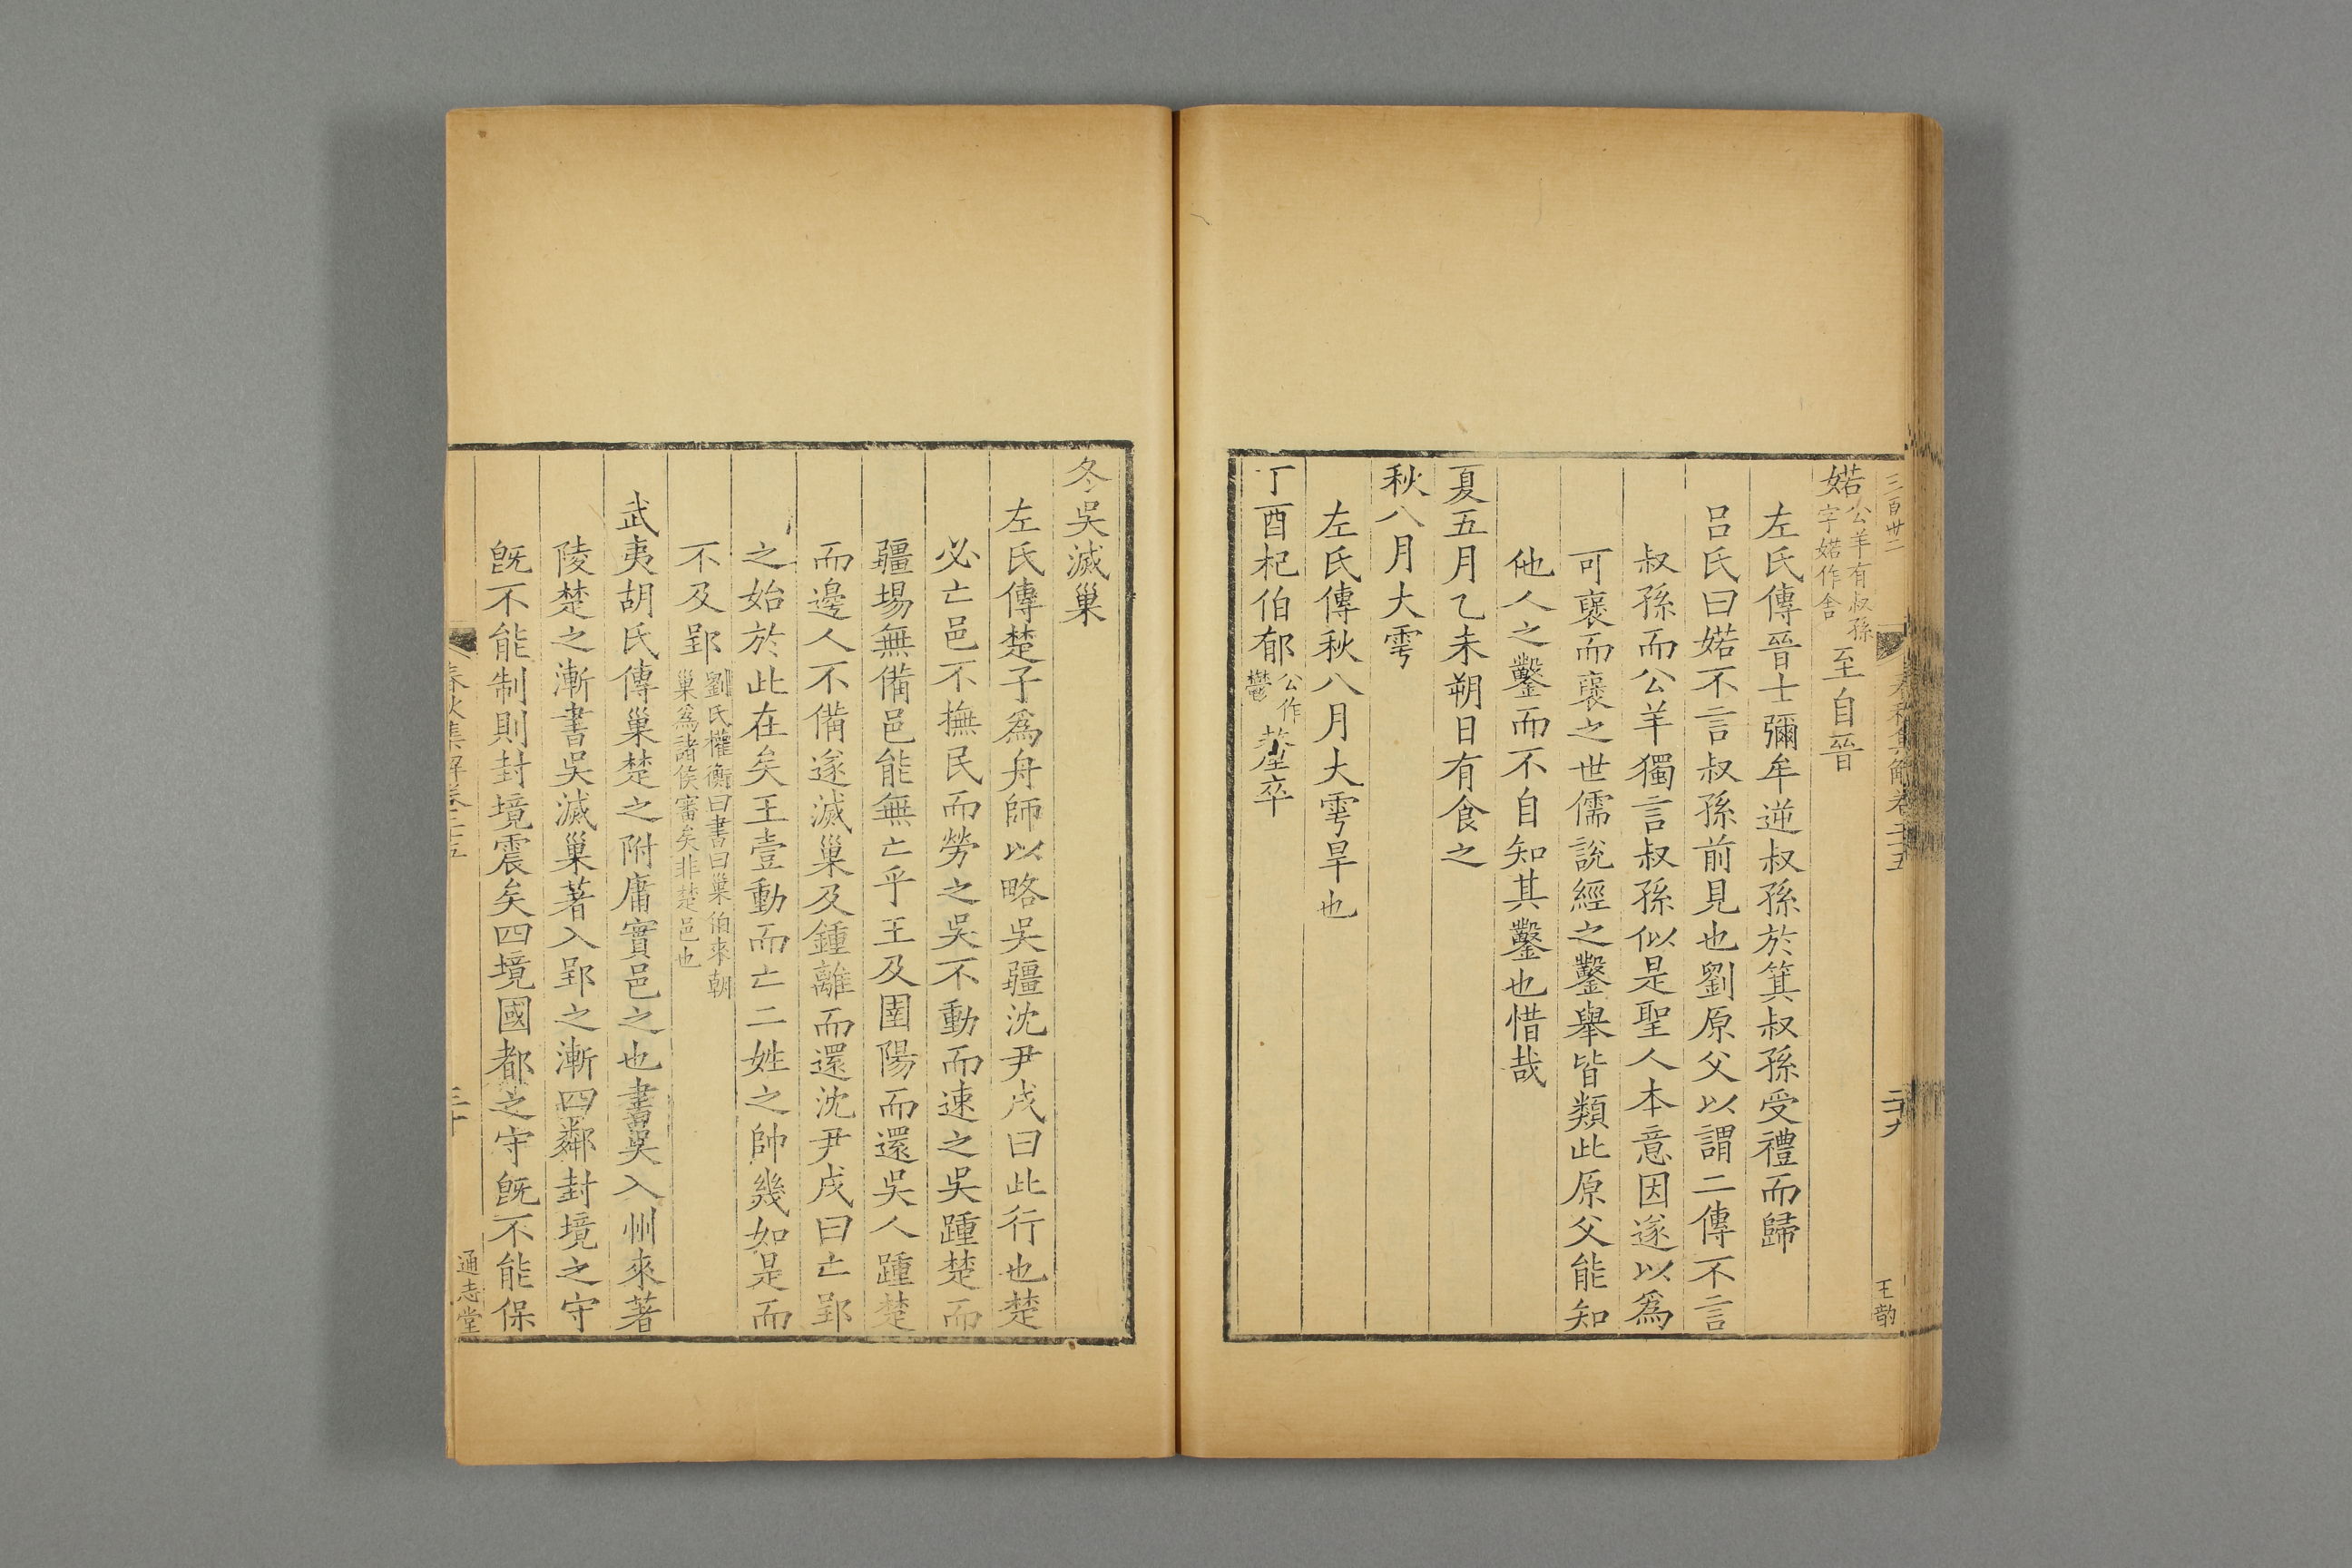 三百卅二
春秋集解卷二十五
二十九
王韵
婼公羊有叔孫字婼作舍至自晉
左氏傳晉士彌牟逆叔孫於箕叔孫受禮而歸
呂氏曰婼不言叔孫前見也劉原父以謂二傳不言
叔孫而公羊獨言叔孫似是聖人本意因遂以爲
可襃而襃之世儒說經之鑿舉皆類此原父能知
他人之鑿而不自知其鑿也惜哉
夏五月乙未朔日有食之
秋八月大雩
左氏傳秋八月大雩旱也
丁酉杞伯郁公作鬱釐卒
冬吳滅巢
左氏傳楚子爲舟師以略吳疆沈尹戌曰此行也楚
必亡邑不撫民而勞之吳不動而速之吳踵楚而
疆埸無備邑能無亡乎王及圉陽而還吳人踵楚
而邊人不備遂滅巢及鍾離而還沈尹戌曰亡郢
之始於此在矣王壹動而亡二姓之帥幾如是而
不及郢劉氏權衡曰書曰巢伯來朝巢爲諸侯審矣非楚邑也
武夷胡氏傳巢楚之附庸實邑之也書吳入州來著
陵楚之漸書吳滅巢著入郢之漸四鄰封境之守
旣不能制則封境震矣四境國都之守旣不能保
春秋集解卷二十五
三十
通志堂